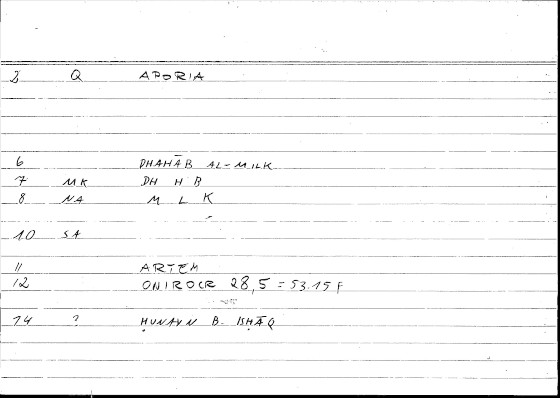 2 Q APORIA
6 DHAHĀB AL-MILK
7 MK DH H B
8 NA M L K
10 SA
11 ARTEM
12 ONIROCR 28,5 = 53.15 f
14 ? ḤUNAYN B. ISḤĀQ